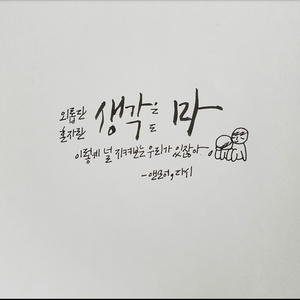 외롭단 생각은 마
혼자란 생각도 마
이렇게 널 지켜보는 우리가 있잖아
-앤씨아, 다시